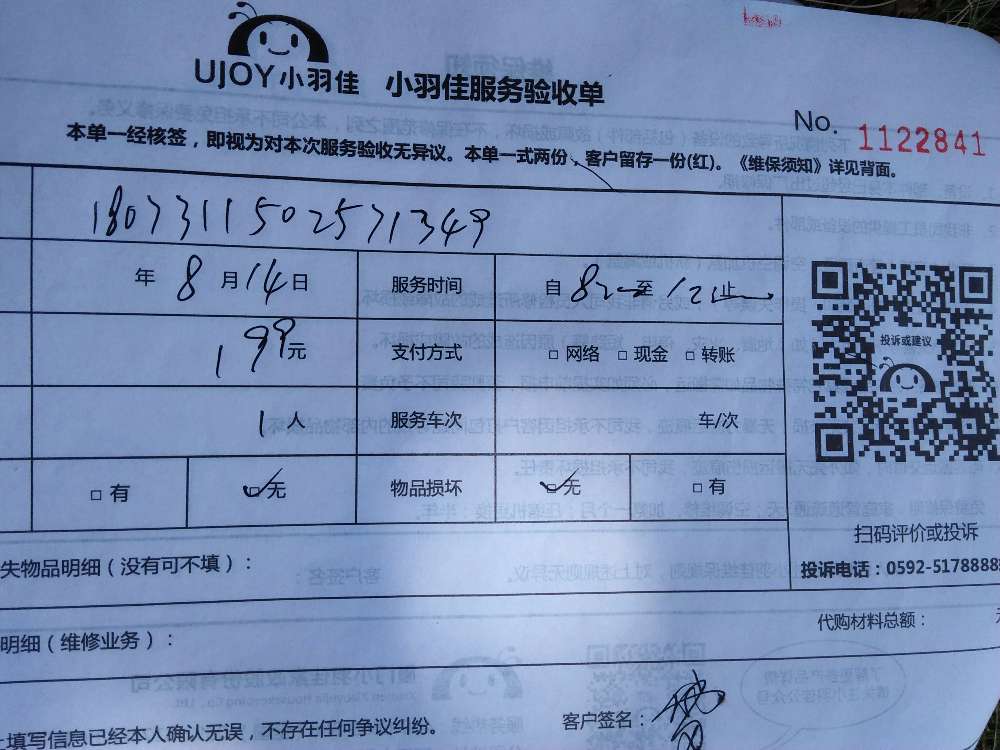 UJOY小羽佳 小羽佳服务验收单
No. 1122841
本单一经核签，即视为对本次服务验收无异议。本单一式两份、客户留存一份(红)。《维保须知》详见背面。
1807311502571349
年 8 月 14 日 服务时间 自 8 至 12 止
199元 支付方式 □ 网络 □ 现金 □ 转账
投诉或建议
1 人 服务车次 车/次
□ 有 □ 无 物品损坏 □ 无 □ 有
扫码评价或投诉
投诉电话：0592-5178888
失物品明细（没有可不填）：
代购材料总额：
明细（维修业务）：
上填写信息已经本人确认无误，不存在任何争议纠纷。 客户签名：